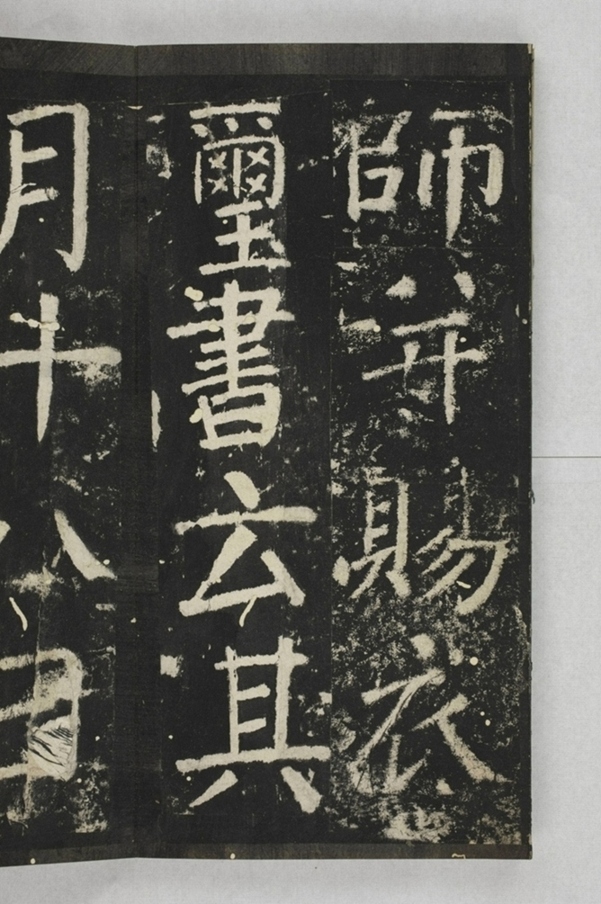 師并賜衣
璽書云其
月十八日